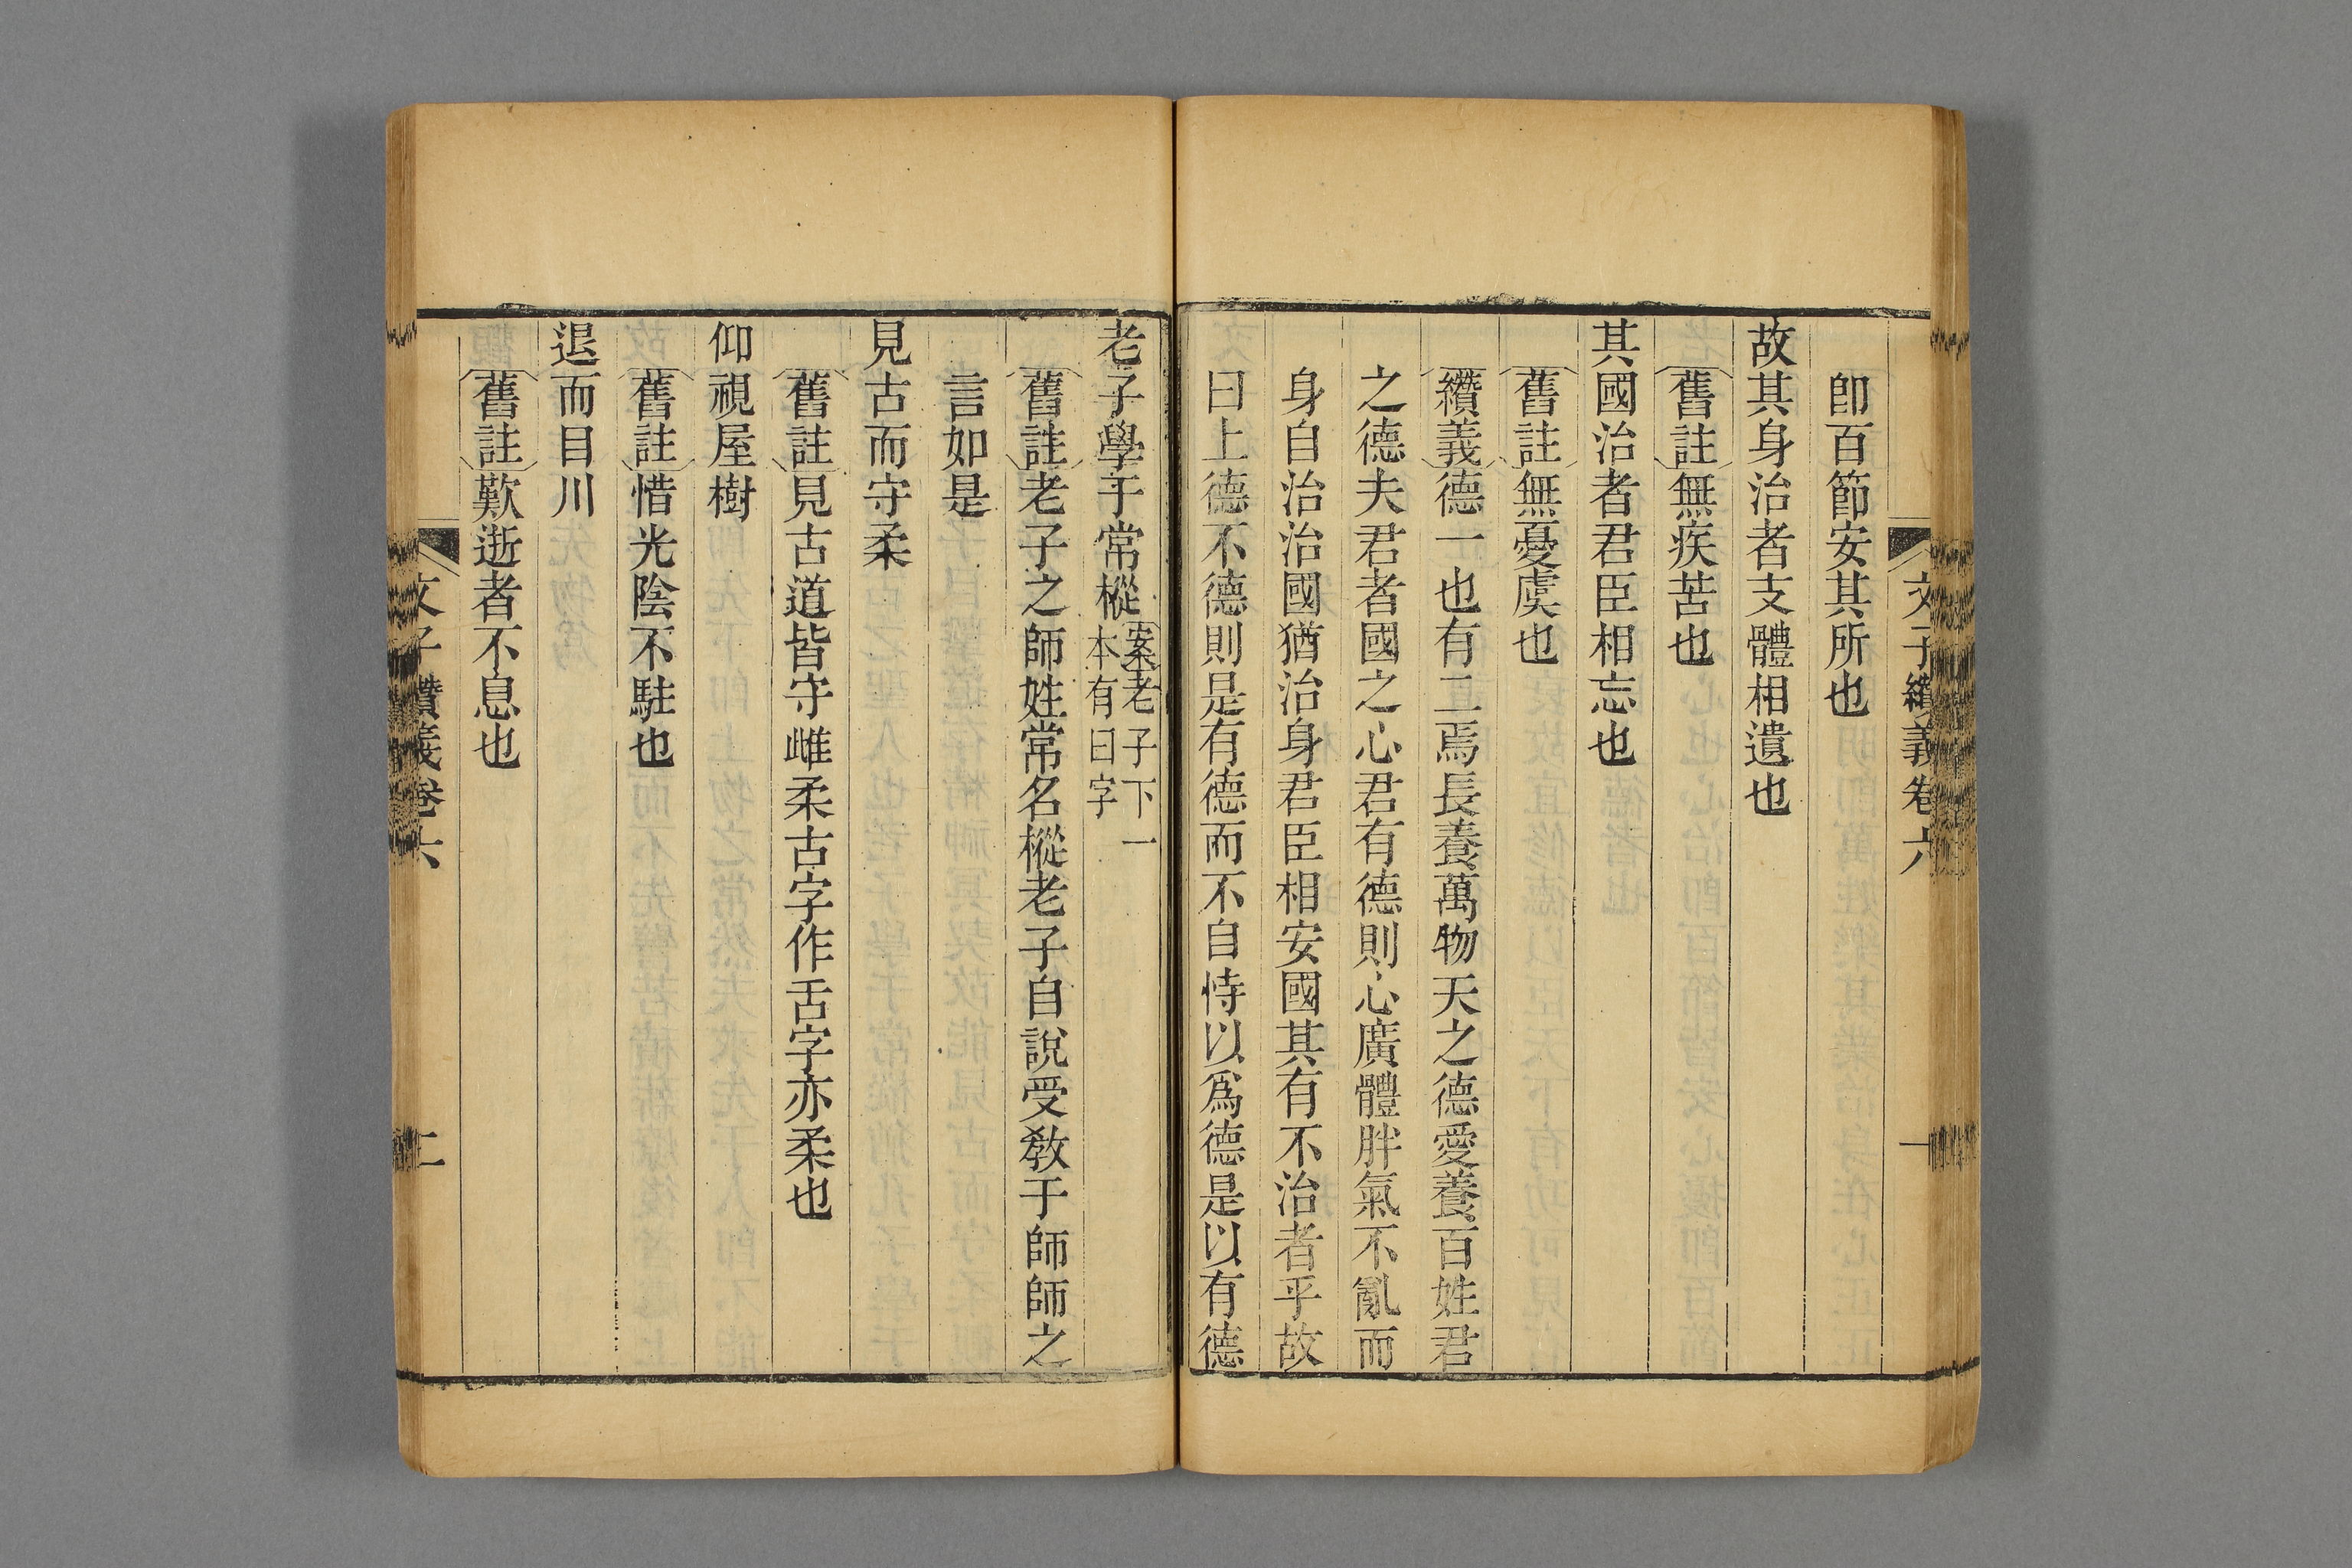 文子纘義卷六
一
卽百節安其所也
故其身治者支體相遺也
舊註無疾苦也
其國治者君臣相忘也
舊註無憂虞也
纘義德一也有二焉長養萬物天之德愛養百姓君
之德夫君者國之心君有德則心廣體胖氣不亂而
身自治治國猶治身君臣相安國其有不治者乎故
曰上德不德則是有德而不自恃以爲德是以有德
老子學于常樅案老子下一
本有曰字
舊註老子之師姓常名樅老子自說受敎于師師之
言如是
見古而守柔
舊註見古道皆守雌柔古字作舌字亦柔也
仰視屋樹
舊註惜光陰不駐也
退而目川
舊註歎逝者不息也
文子纘義卷六
二